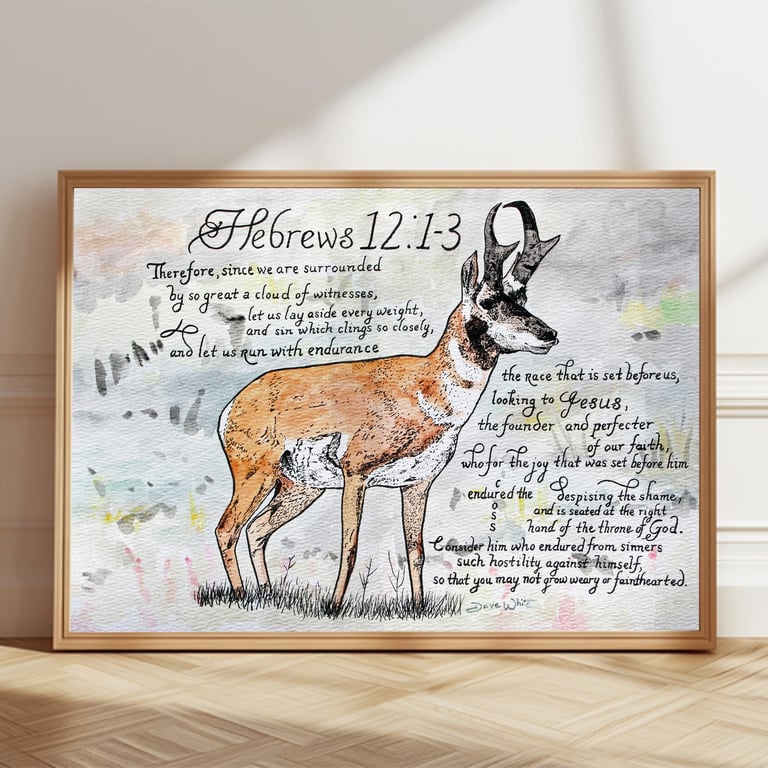 Hebrews 12:1-3
Therefore, since we are surrounded
by so great a cloud of witnesses,
let us lay aside every weight,
and sin which clings so closely,
and let us run with endurance
the race that is set before us,
looking to Jesus,
the founder and perfecter
of our faith,
who for the joy that was set before him
endured the cross despising the shame,
and is seated at the right
hand of the throne of God.
Consider him who endured from sinners
such hostility against himself,
so that you may not grow weary or fainthearted.
Dave White